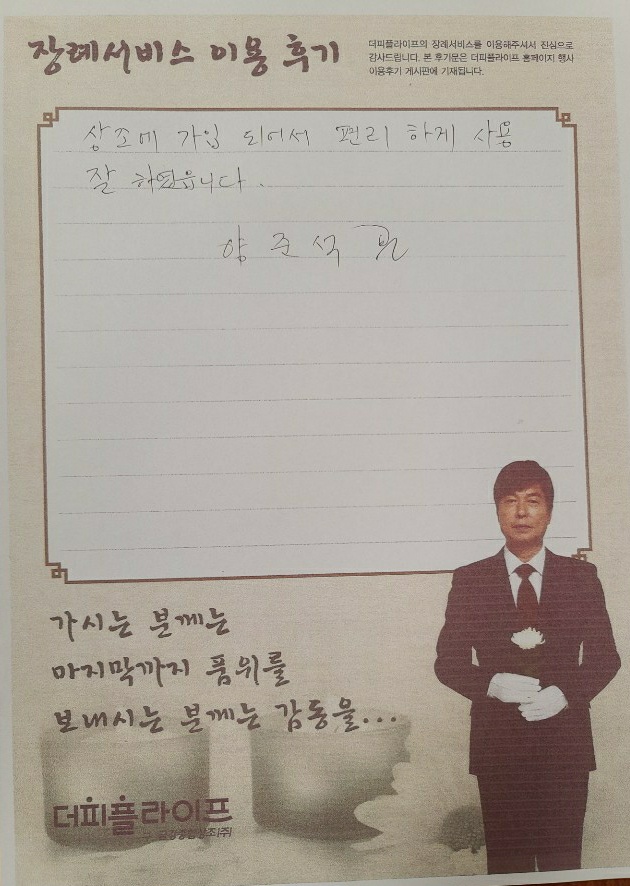 장례서비스 이용 후기
더피플라이프의 장례서비스를 이용해주셔서 진심으로
감사드립니다. 본 후기문은 더피플라이프 홈페이지 행사
이용후기 게시판에 기재됩니다.
상조에 가입 되어서 편리 하게 사용
잘 하였읍니다.
양 준 석
가시는 분께는
마지막까지 품위를
보내시는 분께는 감동을...
더피플라이프